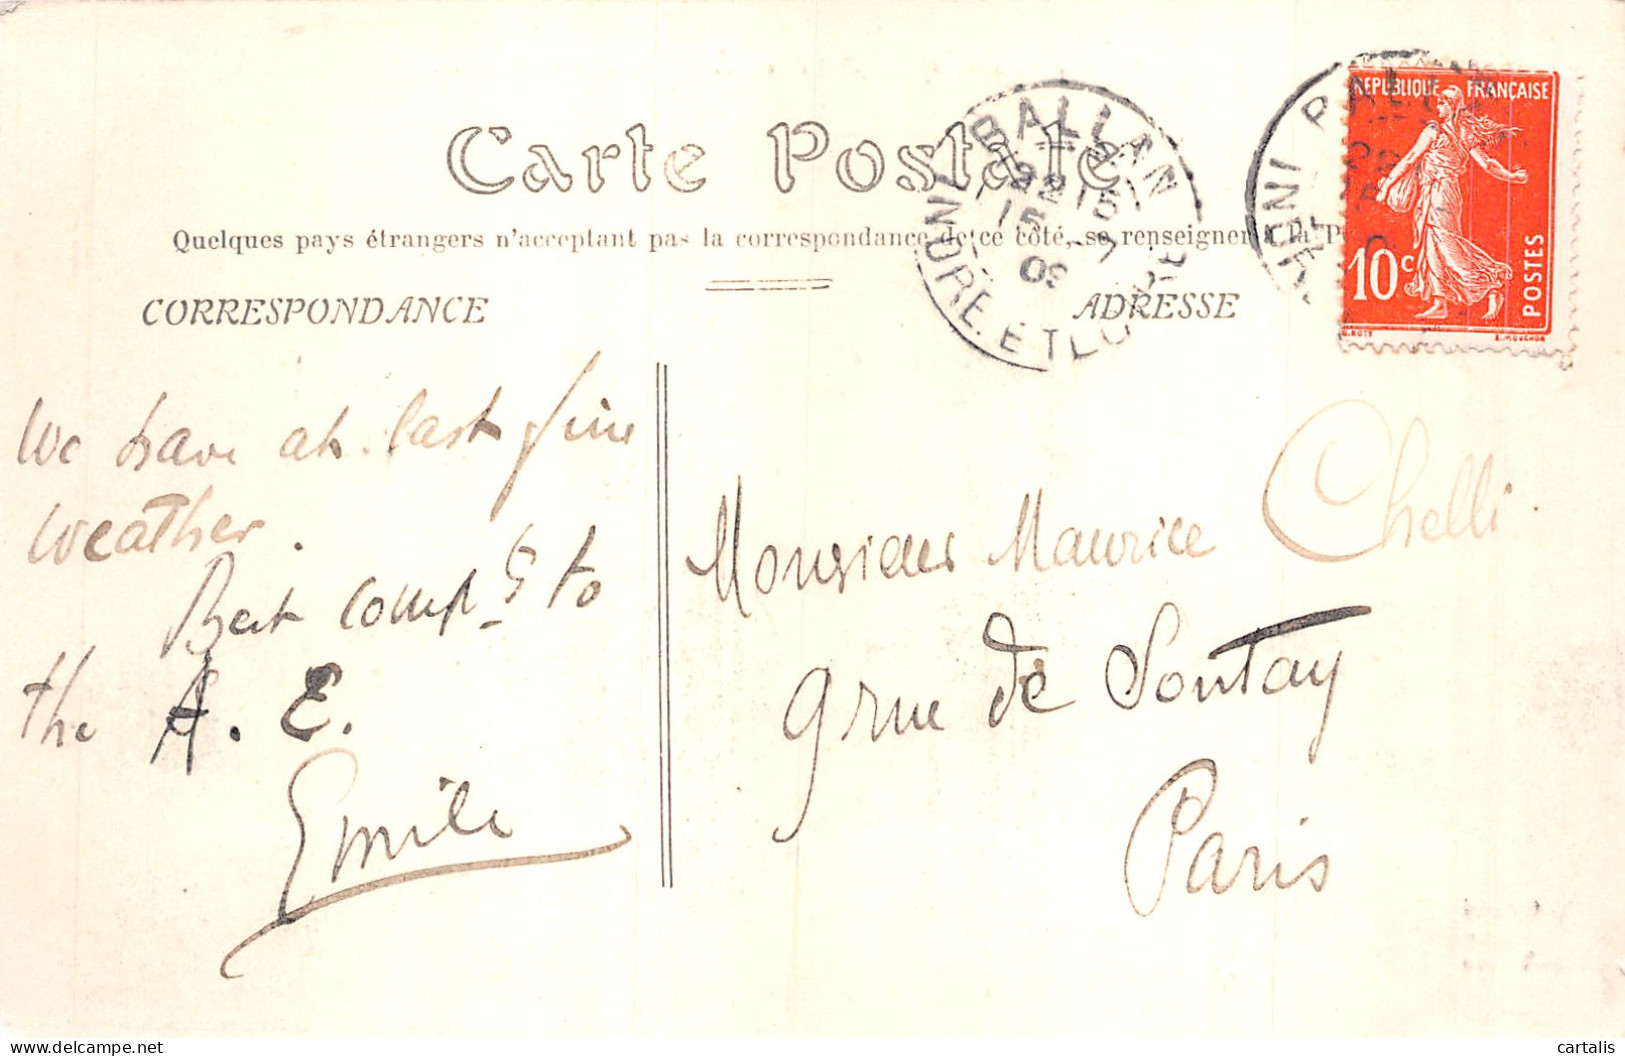 Carte Postale
Quelques pays étrangers n'acceptant pas la correspondance de ce côté, se renseigner à la P
CORRESPONDANCE
ADRESSE
BALLAN
22 15
15 - 7
09
INDRE ET LOIRE
BALLAN
INDRE
REPUBLIQUE FRANÇAISE
10c
POSTES
O. ROTY
E. MOUCHON
We have at last fine
weather.
Best compts to
the A. E.
Emile
Monsieur Maurice Chelli.
9 rue de Sontay
Paris
cartalis